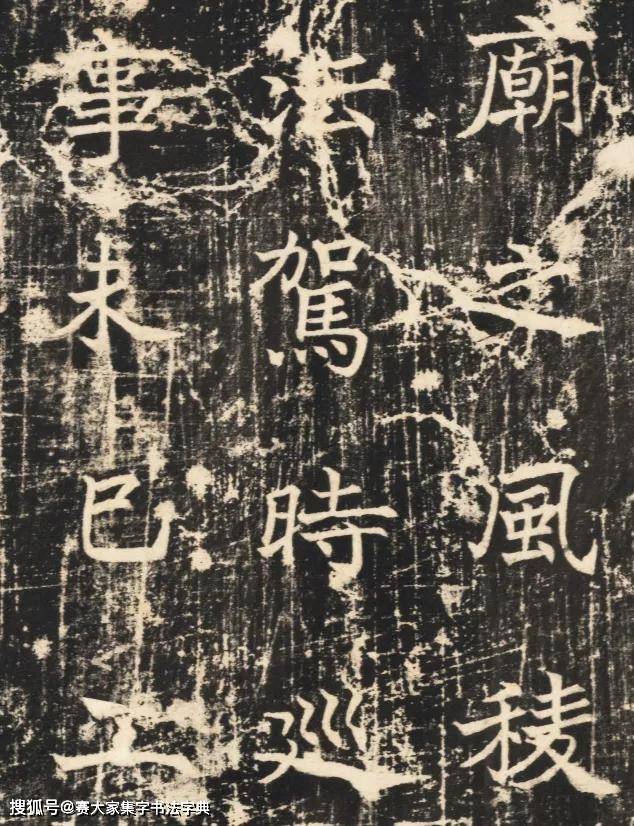 廟之風稜
法駕時巡
事未巳工
搜狐号@赛大家集字书法字典